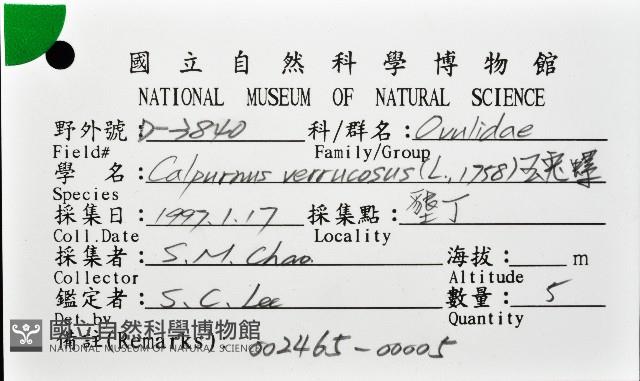 國立自然科學博物館
NATIONAL MUSEUM OF NATURAL SCIENCE
野外號: D-3840 科/群名: Ovulidae
Field# Family/Group
學 名: Calpurnus verrucosus (L., 1758) 玉兎螺
Species
採集日: 1997.1.17 採集點: 墾丁
Coll.Date Locality
採集者: S.M. Chao 海拔: m
Collector Altitude
鑑定者: S.C. Lee 數量: 5
Det.by Quantity
備註(Remarks): 002465-00005
國立自然科學博物館
NATIONAL MUSEUM OF NATURAL SCIENCE